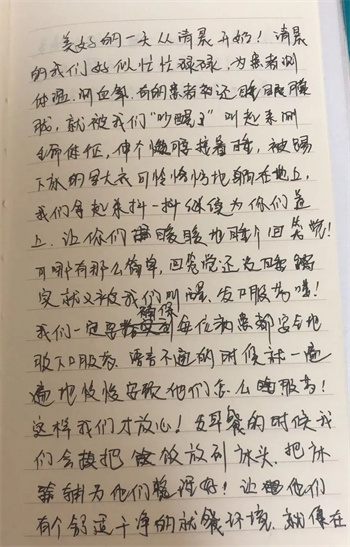 美好的一天从清晨开始！清晨
的我们好似忙忙碌碌，为患者测
体温、测血氧，有的患者还睡眼朦
胧，就被我们“吵醒了”叫起来测
生命体征，伸个懒腰接着睡，被踢
下床的军大衣可怜悕悕地躺在地上，
我们拿起来抖一抖继续为你们盖
上，让你们暖暖地睡个回笼觉！
可哪有那么简单，回笼觉还没睡踏
实就又被我们叫醒，发口服药喽！
我们一定要确保每位病患都安全地
服下口服药，语言不通的时候就一遍
遍地比划安歌他们怎么服药！
这样我们才放心！发早餐的时候我
们会把饭放到床头，把床
铺为他们整理好！让他们
有个舒适干净的就餐环境，就像在